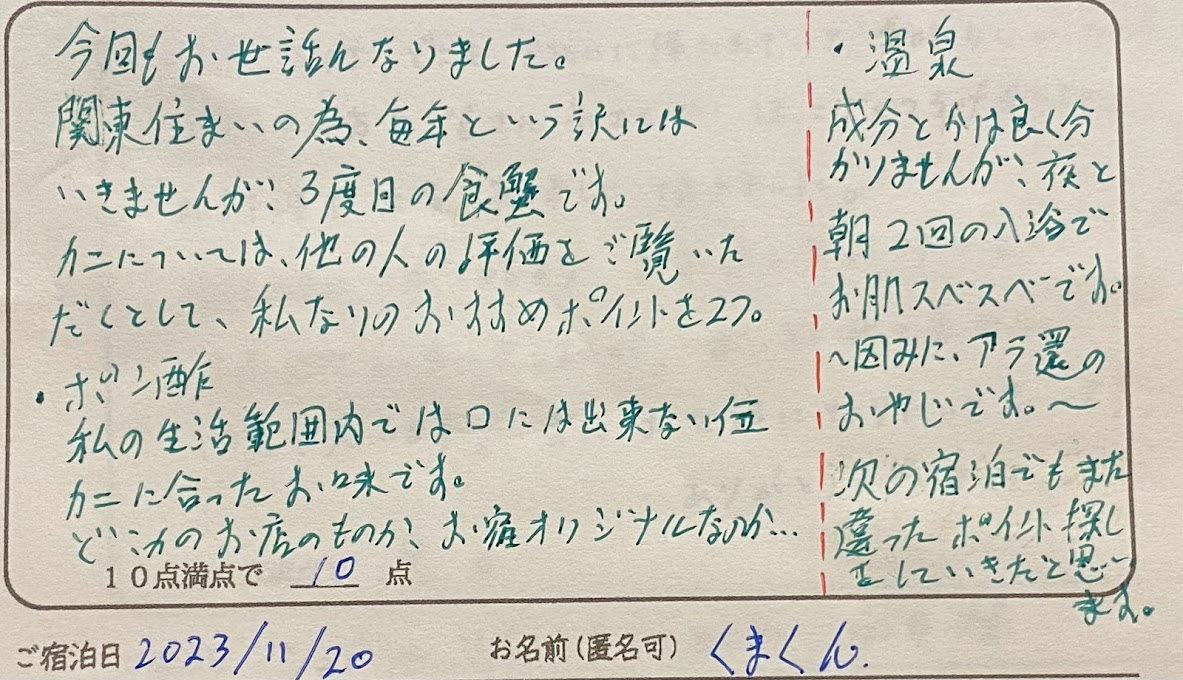 今回もお世話んなりました。
関東住まいの為、毎年という訳には
いきませんが、3度目の食蟹です。
カニについては、他の人の評価をご覧いた
だくとして、私なりのおすすめポイントを2つ。
・ポン酢
私の生活範囲内では口には出来ない位
カニに合ったお味です。
どこかのお店のものか、お宿オリジナルなのか…
10点満点で 10 点
・温泉
成分とかは良く分
かりませんが、夜と
朝2回の入浴で
お肌スベスベです。
～因みに、アラ還の
おやじです。～
次の宿泊でもまた
違ったポイント探し
をしていきたと思い
ます。
ご宿泊日 2023/11/20
お名前(匿名可) くまくん.